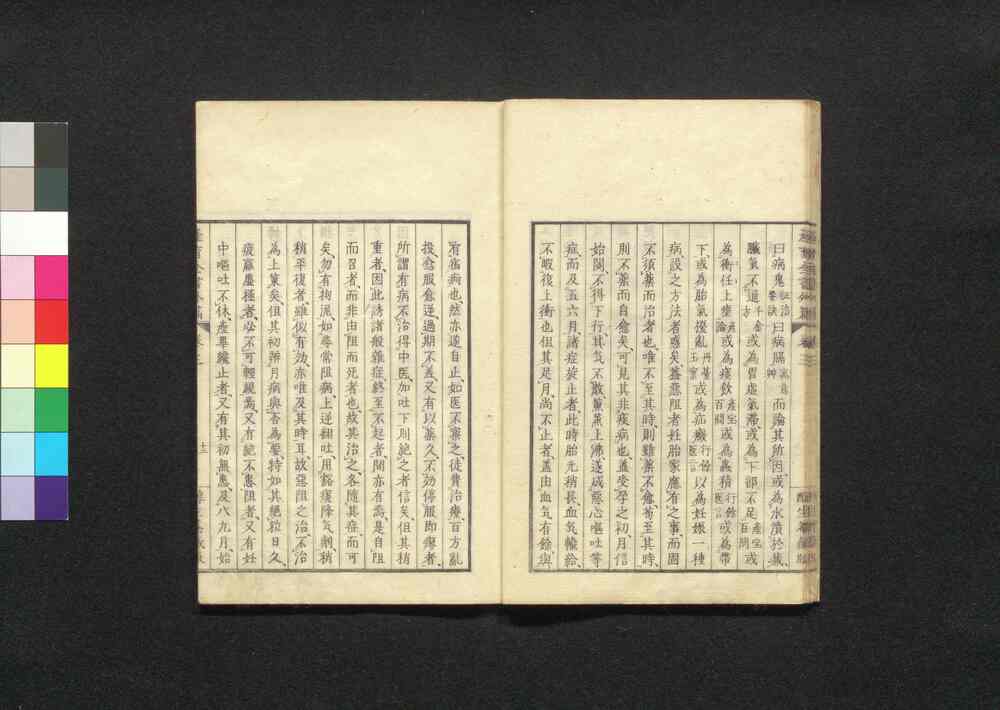 曰病鬼證治要訣曰病膈高自明神而論其所因或為水漬於藏
臟氣不進千金方或為胃虛氣滯或為下部不足產宝百問或
為衝任上壅產論或為痰飲產宝百問或為蟲積行餘医言或為帶
下或為胎氣擾亂丹墓玉案或為疝癥行餘医言以為妊娠一種
病設之方法者惑矣蓋惡阻者妊胎家應有之事而固
不須藥而治者也唯不至其時則雖藥不愈苟至其時
則不藥而自愈矣可見其非疾病也蓋受孕之初月信
始閉不得下行其氣不散薰蒸上沸遂成惡心嘔吐等
症而及五六月諸症旋止者此時胎元稍長血氣輸給
不暇復上衝也但其足月尚不止者蓋由血氣有餘與
有宿病也然亦遂自正如医不察之徒費治療百方亂
投愈服愈逆過期不差又有以藥久不効停服即瘳者
所謂有病不治得中医加吐下則絶之者信矣但其稍
重者因此誘諸般雜症終至不起者間亦有焉是自阻
而召者而非由阻而死者也故其治之各隨其症而可
矣勿有拘泥如尋常阻病上逆翻吐用豁痰降氣劑稍
稍平復者雖似有効亦唯及其時耳故惡阻之治不治
為上策矣但其初辨月病與否為要特如其絶粒日久
疲羸尪極者必不可輕視焉又有絶不患阻者又有妊
中嘔吐不休產畢纔止者又有其初無患及八九月始
卷三
十三